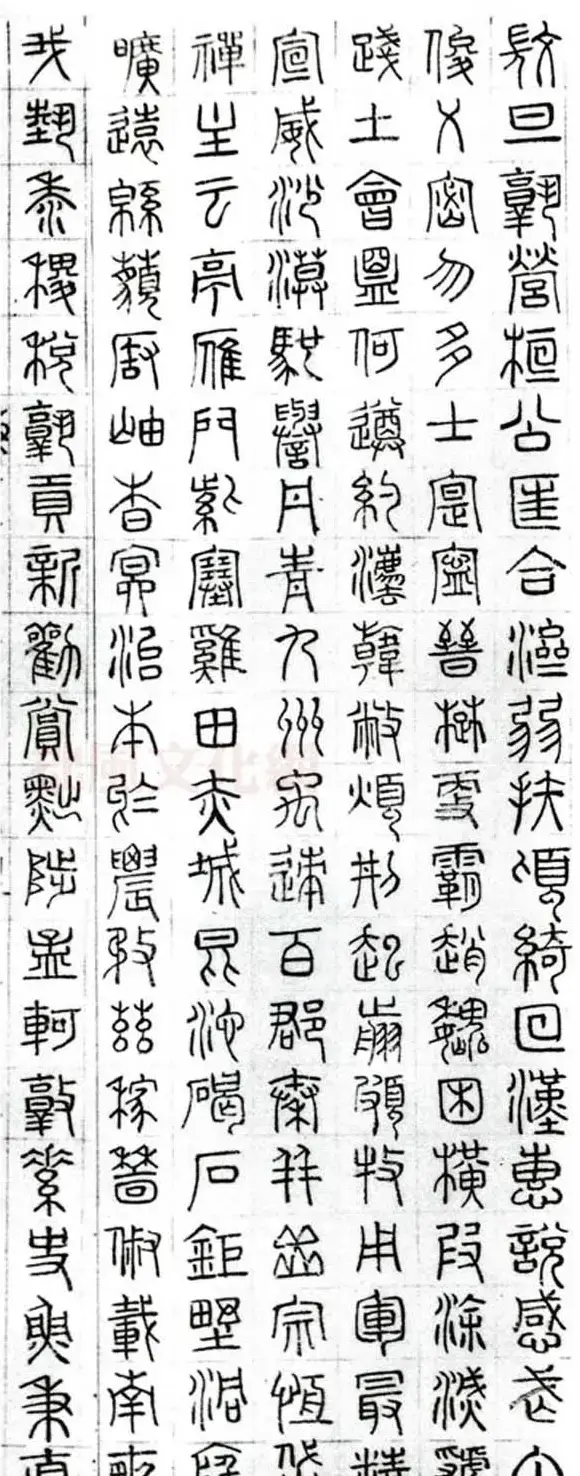 微旦孰營桓公匡合濟弱扶傾綺回漢惠說感武丁
俊乂密勿多士寔寧晉楚更霸趙魏困橫假途滅虢
踐土會盟何遵約法韓弊煩刑起翦頗牧用軍最精
宣威沙漠馳譽丹青九州禹跡百郡秦并嶽宗恒岱
禪主云亭雁門紫塞雞田赤城昆池碣石鉅野洞庭
曠遠綿邈巖岫杳冥治本於農務茲稼穡俶載南畝
我藝黍稷稅熟貢新勸賞黜陟孟軻敦素史魚秉直